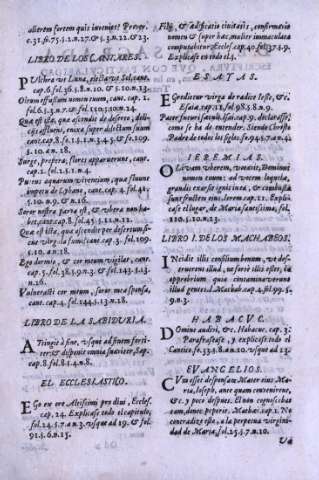 alterem fortem quis inveniet? Prover.
c.31. fo.75.§.1.n.17.& §.3.n.22.& 23.
LIBRO DE LOS CANTARES.
Pulchra ve Luna, electa vs Sol, cant.
cap.6. fol.36.§.8.n.10. & §.10.n.13.
Oleum effusum nomen tuum, cant. cap. 1.
fol.6.§.3.n.7. & fol.110.§.10.n.14.
Qua est ista, qua ascendit de deserto, deli-
cijs affluens, enixa super dilectum suum
cant. cap.8. fo.13.§.1.n.3.4.5. & fol.109.
§.10.n.18.
Surge, propera, flores apparuerunt, cant.
cap. 2.
Puteus aquarum viventium, qua fluunt
impetu de Lybano, cant. cap. 4. fol.41.
§.10.n.9. & n.16.
Soror nostra parva est, & vbera non ha-
bet, cant. cap.8. fol.45.§.12.n.11.
Qua est ista, qua ascendit per desertum si-
cut virgula fumi, cant. cap.3. fol.109.
§.10.n.18.
Ego dormio, & cor meum vigilat, cant.
cap. 5. fol.38.§.9.n.3. & fol.143.§.13.
n.16.
Vulnerasti cor meum, soror mea sponsa,
cant. cap.4. fol.144.§.13.n.18.
LIBRO DE LA SABIDURIA.
Attingit à fine, vsque ad finem forti-
ter: & disponit omnia suaviter, Sap.
cap.8. fol.8.§.4.n.8.
EL ECCLESIASTICO.
Ego ex ore Altissimi prodivi, Eccles.
cap.24. Explicase todo el capitulo,
fol.24.§.7.n.3. vsque ad 19. & fol.
91.§.6.n.15.
Filij, & ædificatio civitatis, confirmavit
nomen & super hac, mulier immaculata
computabitur, Eccles. cap.40. fol.37.§.9.
Explicase en todo el §.
ESAIAS.
Egredietur virga de radice Iesse, &c.
Esaia, cap.11. fol.98.§.8.n.9.
Pater futuri saculi, Esai. cap.9. declarase,
como se ha de entender. Siendo Christo
Padre de todos los siglos, fo.94.§.7.n.41.
IEREMIAS.
Olivam vberem, vocavit Dominus
nomen tuum: ad vocem loquela,
grandis exarsit ignis in ea, & combusta
sunt frutices eius, Ierem. cap.11. Expli-
case el lugar, de Maria santissima, fol.
106.§.10.n.13.
LIBRO I. DE LOS MACHABEOS.
Incidit illis consilium bonum, ve de-
struerent illud, ne forte illis esset, in
opprobrium, quia contaminaverunt
illud gentes 1. Machab. cap.4. fol.99.§.
9.n.3.
HABACVC.
Domine audivi, &c. Habacuc. cap. 3.
Parafrasease, y explicase todo el
Cantico, fo.133.§.8.n.10. vsque ad 13.
EVANGELIOS.
Cum esset desponsata Mater eius Ma-
ria, Ioseph, ante quam convenirent,
&c. y poco despues. Et non cognoscebat
eam, donec peperit. Mathæ. cap.1. No
contradize esto, a la perpetua virgini-
dad de Maria, fol.25.§.7.n.10.